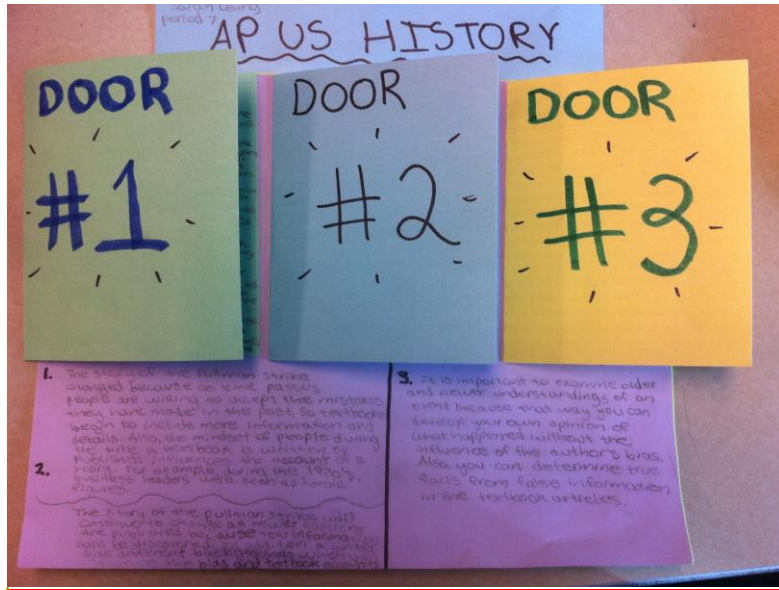 Sarah Leung
period 7
AP US HISTORY
DOOR
#1
DOOR
#2
DOOR
#3
1. The story of the Pullman strike
changed because as time passes
people are willing to accept the mistakes
they have made in the past, so textbooks
begin to include more information and
details. Also, the mindset of people during
the time a textbook is written or
published influences the account of a
story. For example during the 1920's,
business leaders were seen as heroic
figures.
2.
The story of the Pullman strike will
continue to change as newer
are published because new information
will be discovered. In addition a writer
has different backgrounds which
bias and textbook accounts
3. It is important to examine older
and newer understandings of an
event because that way you can
develop your own opinion of
what happened without the
influence of the author's bias.
Also, you can determine true
facts from false information
in the textbook articles.